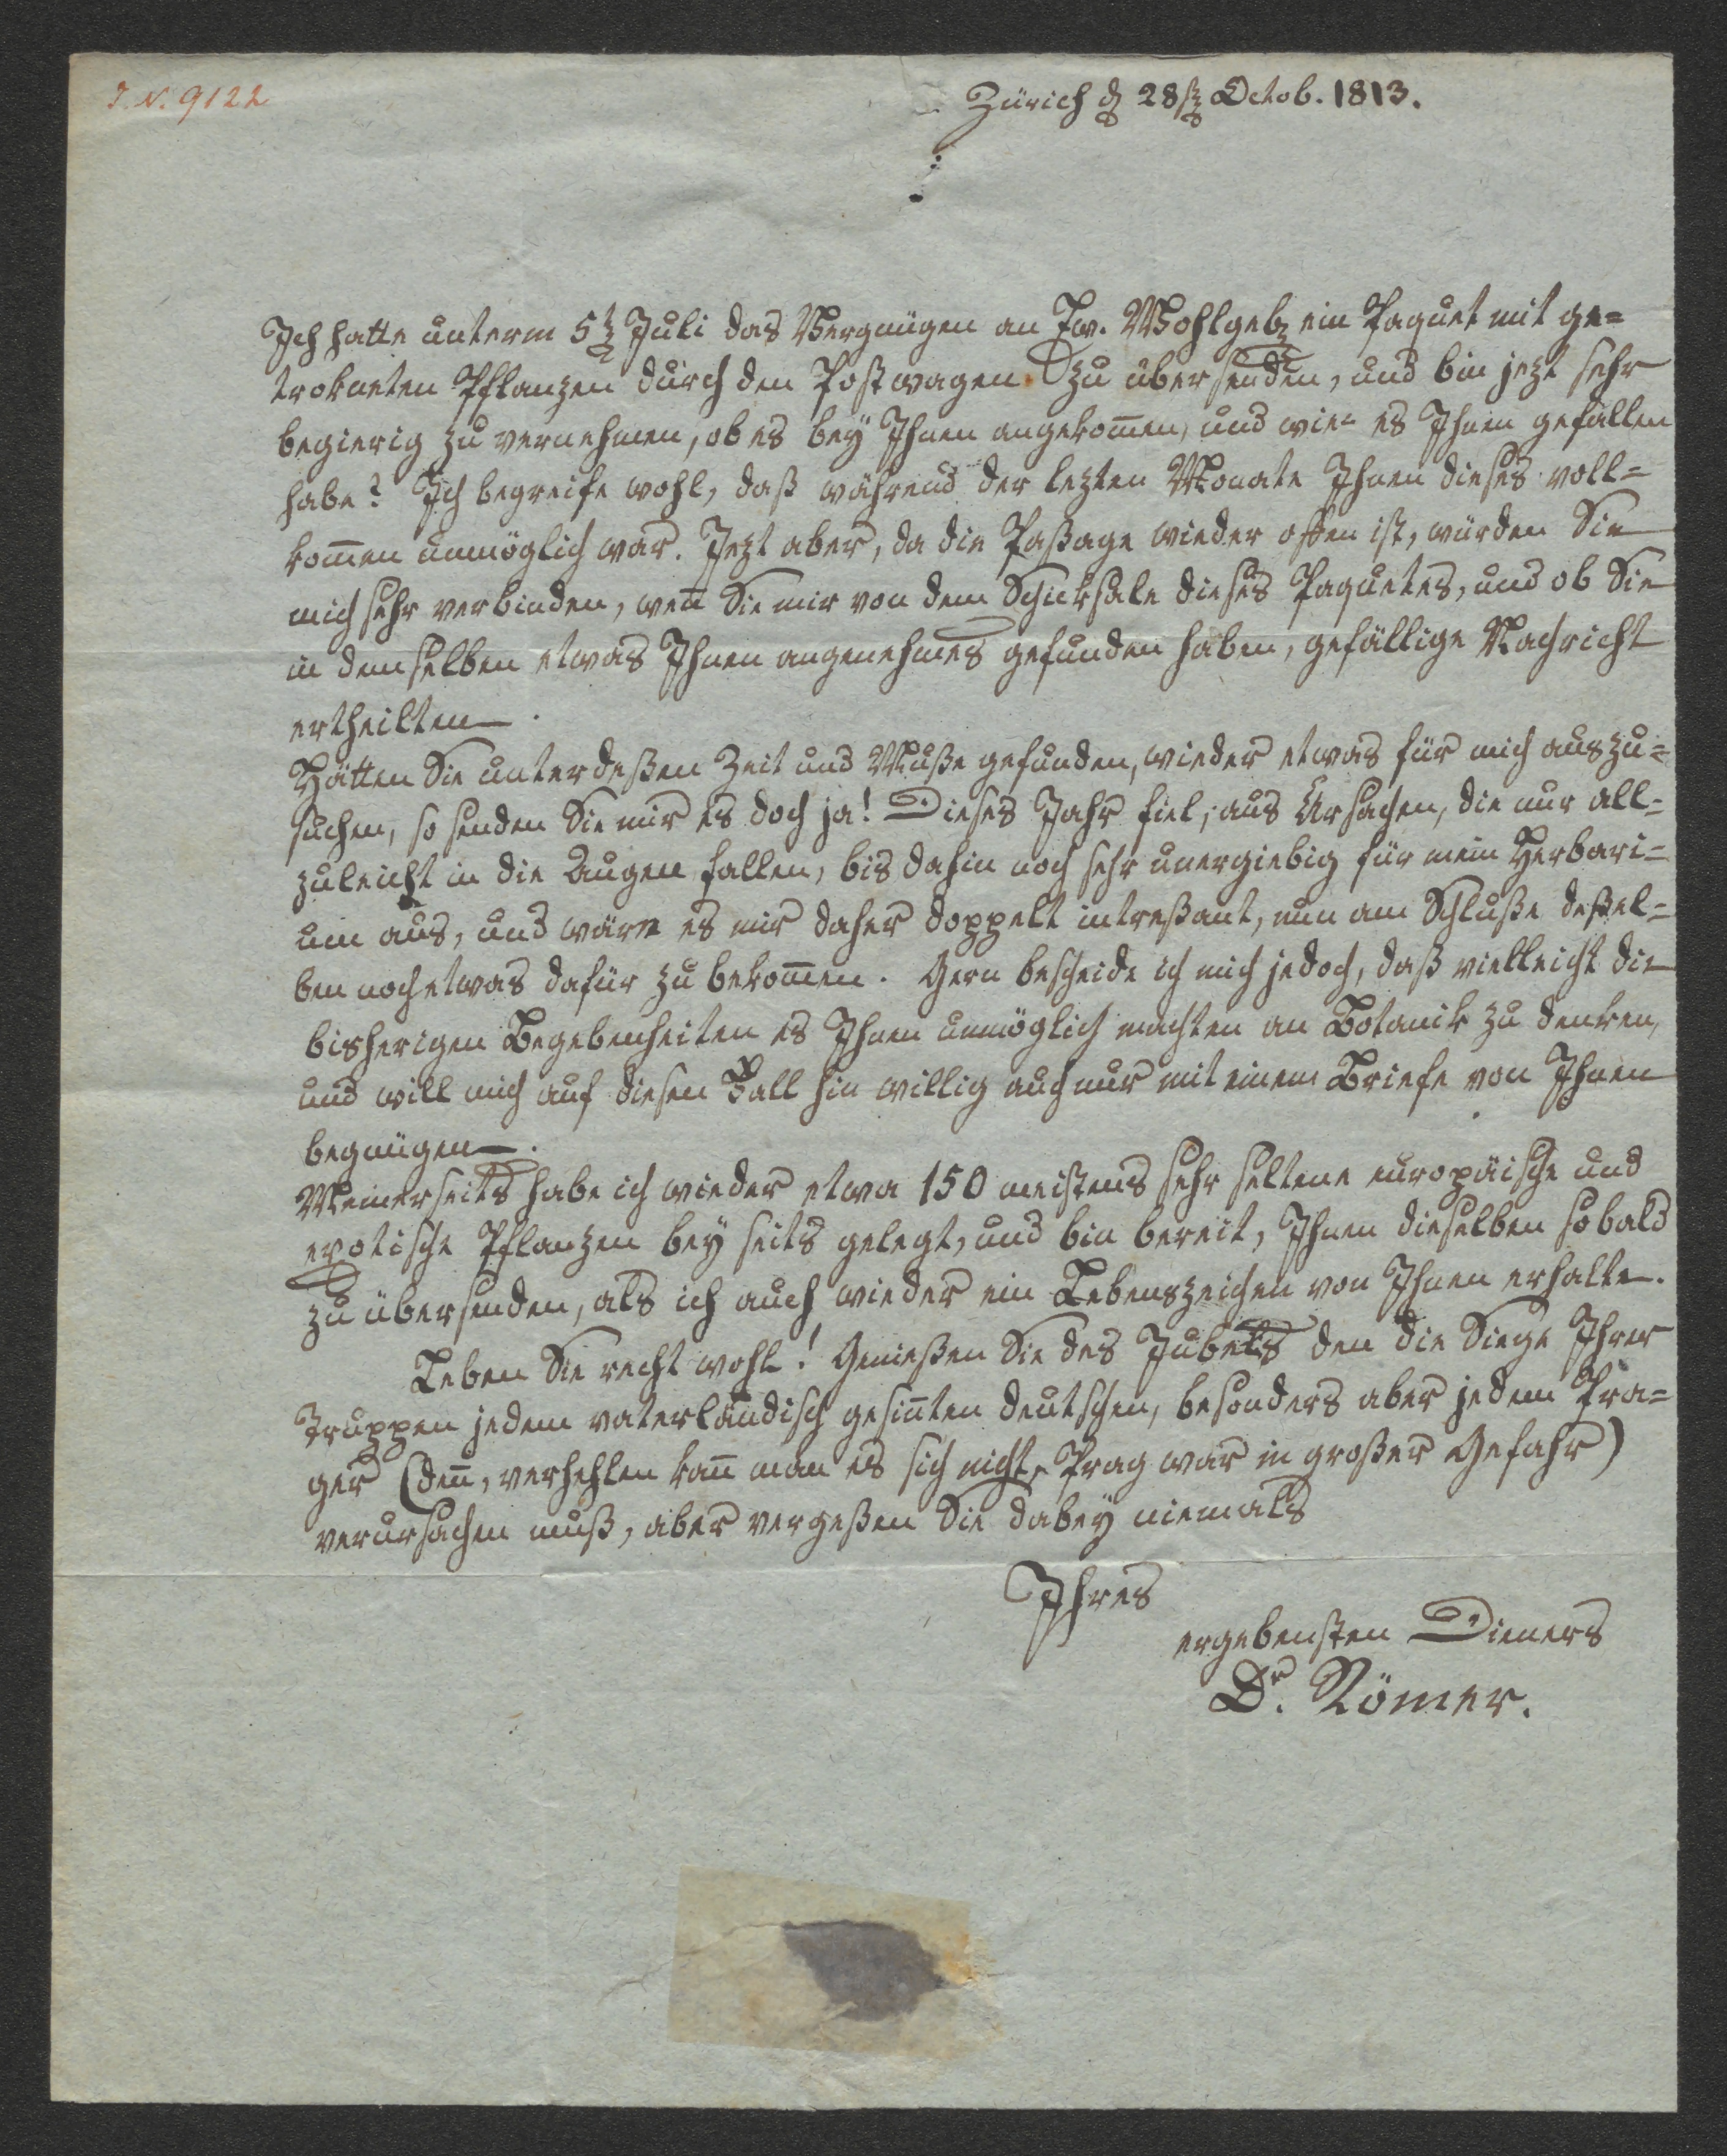 I. N. 9122
Zürich d 28st Octob. 1813.
Ich hatte unterm 5t Juli das Vergnügen an Ew. Wohlgeb ein Paquet mit ge=
trokneten Pflanzen durch den Postwagen zu übersenden, und bin jezt sehr
begierig zu vernehmen, ob es bey Ihnen angekom̄en, und wie es Ihnen gefallen
habe? Ich begreife wohl, daß während der lezten Monate Ihnen dieses voll=
kom̄en unmöglich war. Jezt aber, da die Paßage wieder offen ist, würden Sie
mich sehr verbinden, wen̄ Sie mir von dem Schicksale dieses Paquetes, und ob Sie
in demselben etwas Ihnen angenehmes gefunden haben, gefällige Nachricht
ertheilten.
Hätten Sie unterdeßen Zeit und Muße gefunden, wieder etwas für mich auszu=
suchen, so senden Sie mir es doch ja! Dieses Jahr fiel, aus Ursachen, die nur all=
zuleicht in die Augen fallen, bis dahin noch sehr unergiebig für mein Herbari=
um aus, und wäre es mir daher doppelt intreßant, nun am Schluße deßel=
ben noch etwas dafür zu bekom̄en. Gern bescheide ich mich jedoch, daß vielleicht die
bisherigen Begebenheiten es Ihnen unmöglich machten an Botanik zu denken,
und will mich auf diesen Fall hin willig auch nur mit einem Briefe von Ihnen
begnügen.
Meinerseits habe ich wieder etwa 150 meistens sehr seltene europäische und
exotische Pflanzen bey seits gelegt, und bin bereit, Ihnen dieselben sobald
zu übersenden, als ich auch wieder ein Lebenszeichen von Ihnen erhalte.
Leben Sie recht wohl! Genießen Sie des Jubels den die Siege Ihrer
Truppen jedem vaterländisch gesin̄ten deutschen, besonders aber jedem Pra=
ger (den̄, verhehlen kan̄ man es sich nicht, Prag war in großer Gefahr)
verursachen muß, aber vergeßen Sie dabey niemals
Ihres
ergebensten Dieners
Dr. Römer.